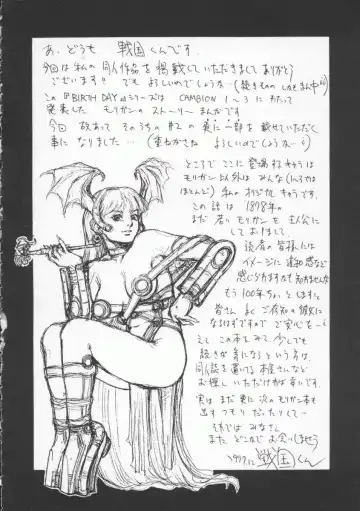 あ、どうも 戦国くんです.
今回は私の同人作品を掲載していただきまして ありがとう
ございます!! でも よろしいのでしょうかー (続きもの しかも まん中)
この『BIRTH DAY』シリーズは CAMBION 1〜3 にわたって
発表した モリガンの ストーリー まんがです
今回 故あって そのうちの #2 の 更に一部を 載せていただく
事に なりました… (重ねがさね よろしいのでしょうかー)
ところで ここに 登場するキャラは
モリガン以外は みんな
ほとんど) 私の オリジナルキャラです.
この話は 1878年の
まだ 若い モリガン を 主人公に
しておりまして、
読者の皆様には
イメージに 違和感など
感じられますかも知れませんが
もう 100年ちょっとしますと
皆さん よく ご存知の 彼女に
なるはずですので ご安心を…
この本をみて 少しでも
続きが 気になる という方は、
同人誌を 置いてる 本屋さんなど
お探し いただければ 幸いです.
実は まだ 更に 次の モリガン本も
出す つもり だったりして…
それでは みなさん
また どこかで お会いしましょう
1997.12 戦国くん